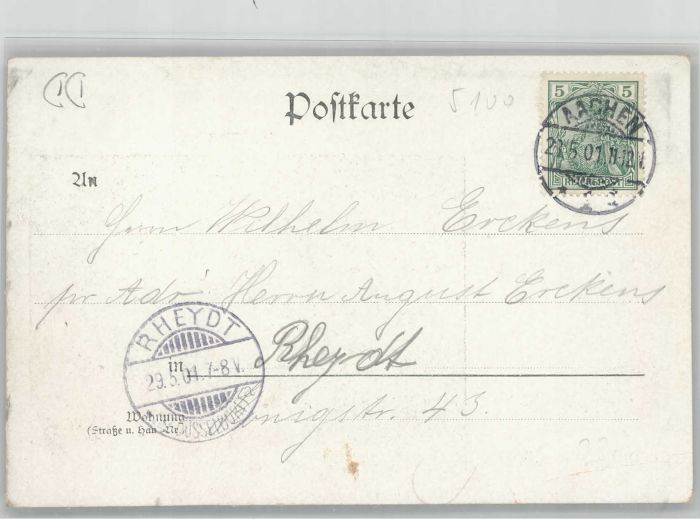 5100
Postkarte
5 5
AACHEN
29.5.01.11-12.V.
REICHSPOST
An
Herrn Wilhelm Erckens
pr Adr Herrn August Erckens
in Rheydt
RHEYDT
29.5.01.7-8 V.
(BZ. DÜSSELDORF)
Wohnung
(Straße u. Hausnr.) Königstr. 43.